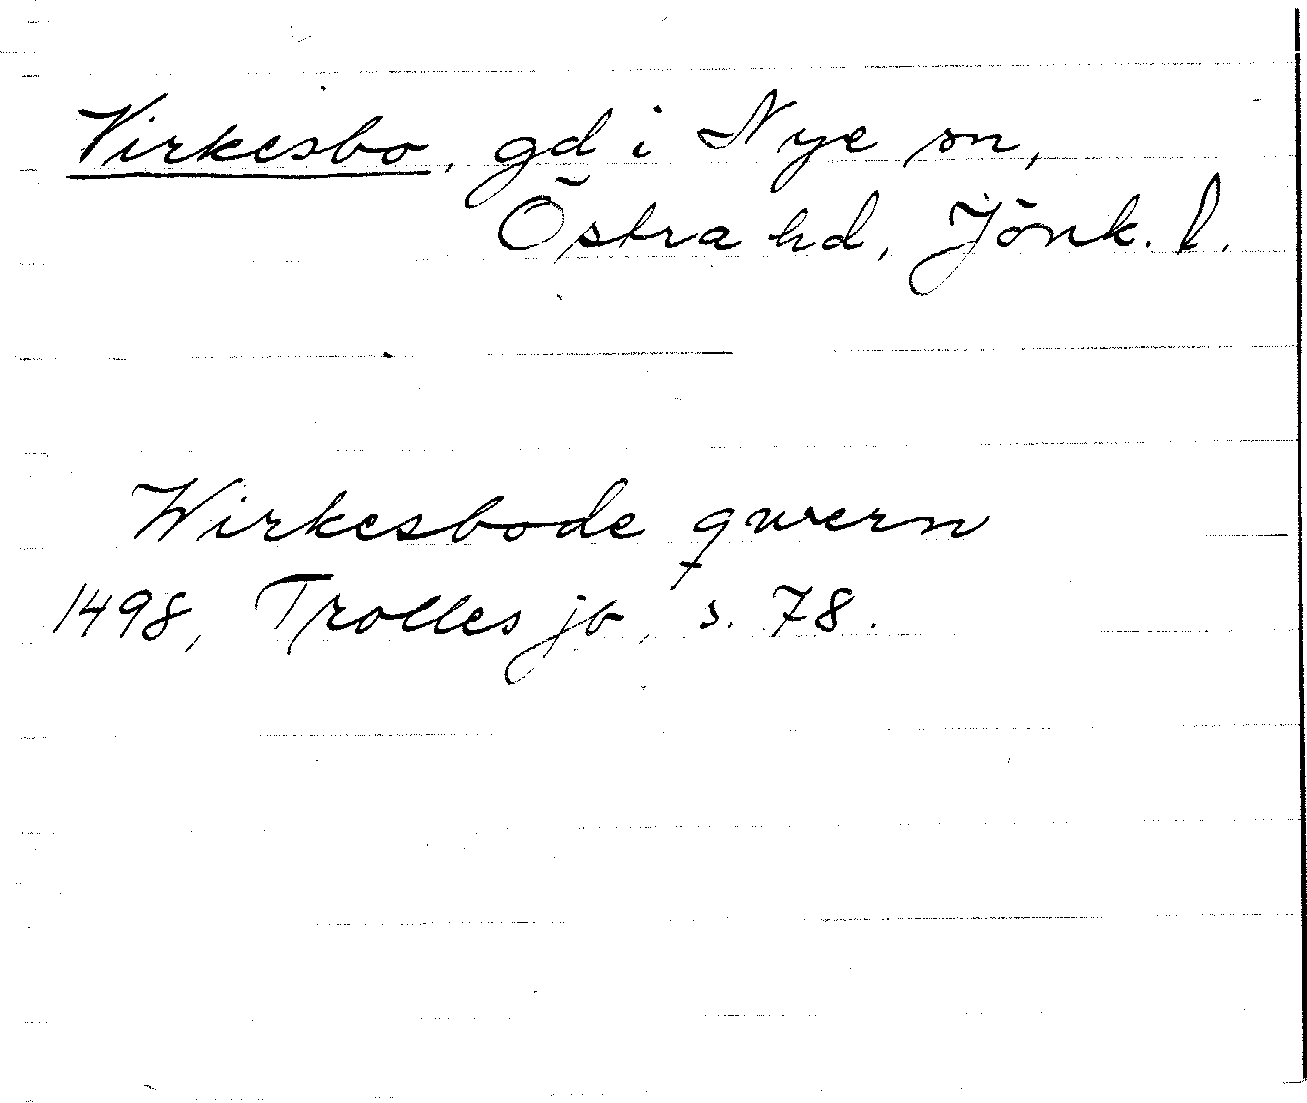 Virkesbo, gd i Nye sn,
Östra hd, Jönk. l.
Wirkesbode qwern
1498, Trolles jb, s. 78.